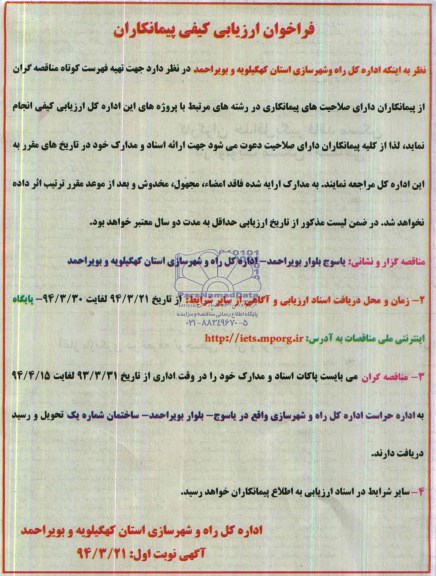 فراخوان ارزیابی کیفی پیمانکاران
نظر به اینکه اداره کل راه وشهرسازی استان کهگیلویه و بویراحمد در نظر دارد جهت تهیه فهرست کوتاه مناقصه گران
از پیمانکاران دارای صلاحیت های پیمانکاری در رشته های مرتبط با پروژه های این اداره کل ارزیابی کیفی انجام
نماید، لذا از کلیه پیمانکاران دارای صلاحیت دعوت می شود جهت ارائه اسناد و مدارک خود در تاریخ های مقرر به
این اداره کل مراجعه نمایند. به مدارک ارایه شده فاقد امضاء، مجهول، مخدوش و بعد از موعد مقرر ترتیب اثر داده
نخواهد شد. در ضمن لیست مذکور از تاریخ ارزیابی حداقل به مدت دو سال معتبر خواهد بود.
مناقصه گزار و نشانی: یاسوج بلوار بویراحمد- اداره کل راه و شهرسازی استان کهگیلویه و بویراحمد
۲- زمان و محل دریافت اسناد ارزیابی و آگاهی از سایر شرایط: از تاریخ ۹۴/۳/۲۱ لغایت ۹۴/۳/۳۰- پایگاه
پایگاه اطلاع رسانی مناقصه و مزایده
۰۲۱-۸۸۳۴۹۶۷۰-۵
اینترنتی ملی مناقصات به آدرس: http://iets.mporg.ir
۳- مناقصه گران می بایست پاکات اسناد و مدارک خود را در وقت اداری از تاریخ ۹۳/۳/۳۱ لغایت ۹۴/۴/۱۵
به اداره حراست اداره کل راه و شهرسازی واقع در یاسوج- بلوار بویراحمد- ساختمان شماره یک تحویل و رسید
دریافت دارند.
۴-سایر شرایط در اسناد ارزیابی به اطلاع پیمانکاران خواهد رسید.
اداره کل راه و شهرسازی استان کهگیلویه و بویراحمد
آگهی نوبت اول: ۹۴/۳/۲۱